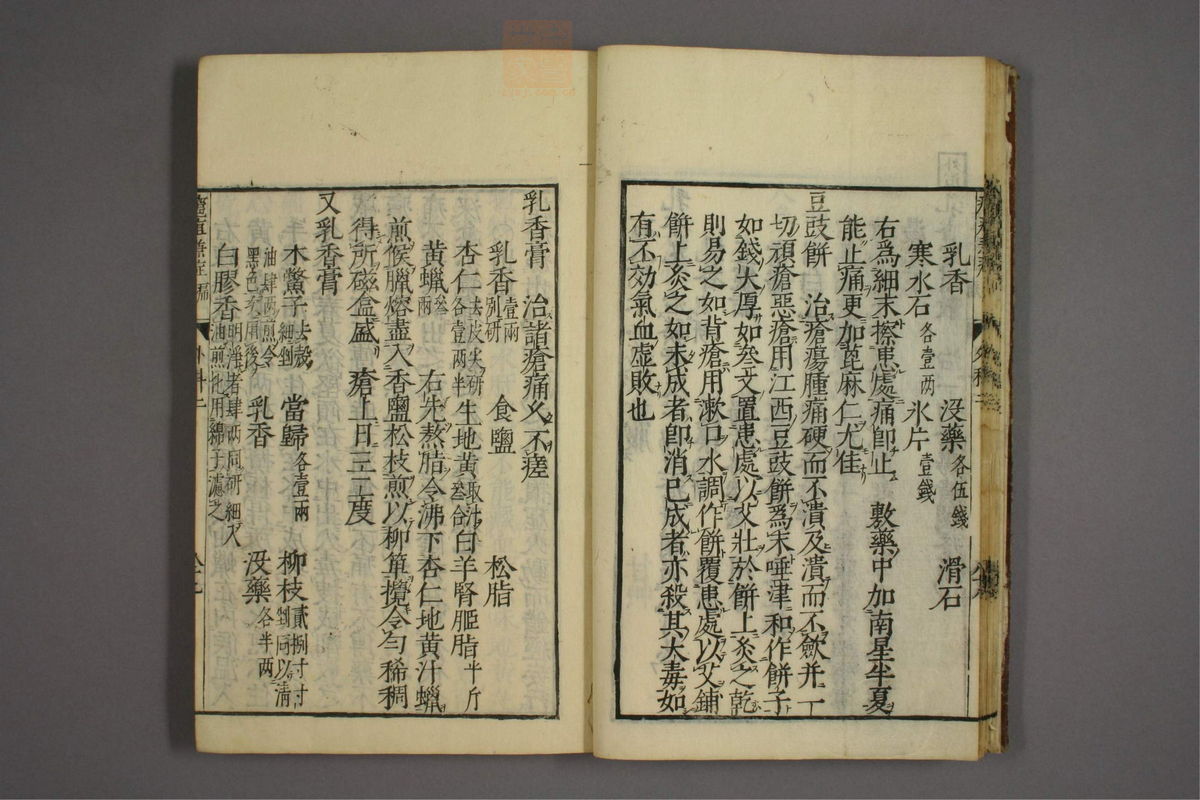 乳香　没藥各伍錢　滑石
寒水石各壹两　氷片壹錢
右爲細末擦患處痛卽止　敷藥中加南星半夏
能止痛更加蓖麻仁尤佳
豆豉餅　治瘡瘍腫痛硬而不潰及潰而不歛并一
切頑瘡惡瘡用江西豆豉餅爲末唾津和作餅子
如錢大厚如叄文置患處以艾壯於餅上灸之乾
則易之如背瘡用漱口水調作餅覆患處以艾鋪
餅上灸之如未成者卽消已成者亦殺其大毒如
有不効氣血虛敗也
乳香膏　治諸瘡痛久不瘥
乳香壹兩別研　食鹽　松脂
杏仁去皮尖研各壹两半　生地黄取汁叄合　白羊腎脂半斤
黄蠟叄两　右先熬脂令沸下杏仁地黄汁蠟
煎候臘熔盡入香鹽松枝煎以柳箄攪令匀稀稠
得所磁盒盛　瘡上日三二度
又乳香膏
木鱉子去殼細剉　當歸各壹兩　柳枝貳捌寸寸剉同以清
油肆两煎令黑色次用後　乳香　没藥各半两
白膠香明淨者肆两同研細入油煎化用綿子濾之